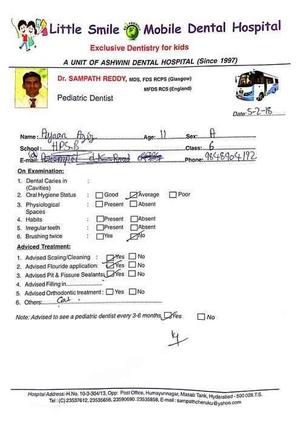 Little Smile Mobile Dental Hospital
Exclusive Dentistry for kids
A UNIT OF ASHWINI DENTAL HOSPITAL (Since 1997)
Dr. SAMPATH REDDY, MDS, FDS RCPS (Glasgow)
MFDS RCS (England)
Pediatric Dentist
Date: 5-2-18
Name: Age: 11 Sex:
School: HPS-B Class: 6
E-mail: Phone:
On Examination:
1. Dental Caries in :
(Cavities)
2. Oral Hygiene Status : Good Average Poor
3. Physiological : Present Absent
Spaces
4. Habits : Present Absent
5. Irregular teeth : Present Absent
6. Brushing twice : Yes No
Adviced Treatment:
1. Advised Scaling/Cleaning : Yes No
2. Advised Flouride application: Yes No
3. Advised Pit & Fissure Sealants: Yes No
4. Advised Filling in
5. Advised Orthodontic treatment : Yes No
6. Others:
Note: Advised to see a pediatric dentist every 3-6 months. Yes No
Hospital Address: H.No. 10-3-304/13, Opp: Post Office, Humayunnagar, Masab Tank, Hyderabad - 500 028 T.S.
Tel: (C) 23537612, 23535658, 23590690, 23535658, E-mail: sampathcheruku@yahoo.com